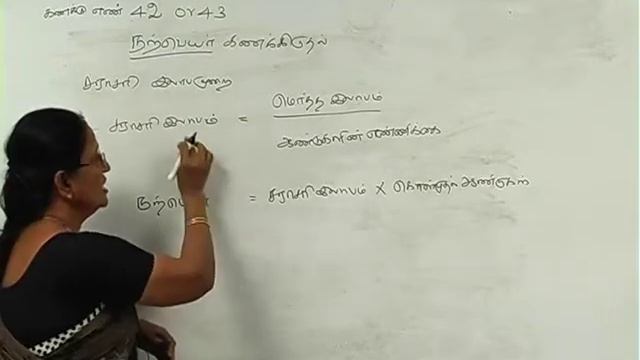 கணக்கு எண் 42 or 43
நற்பெயர் கணக்கிடுதல்
சராசரி இலாபமுறை
சராசரி இலாபம் = மொத்த இலாபம்
ஆண்டுகளின் எண்ணிக்கை
நற்பெயர் = சராசரி இலாபம் X கொள்முதல் ஆண்டுகள்